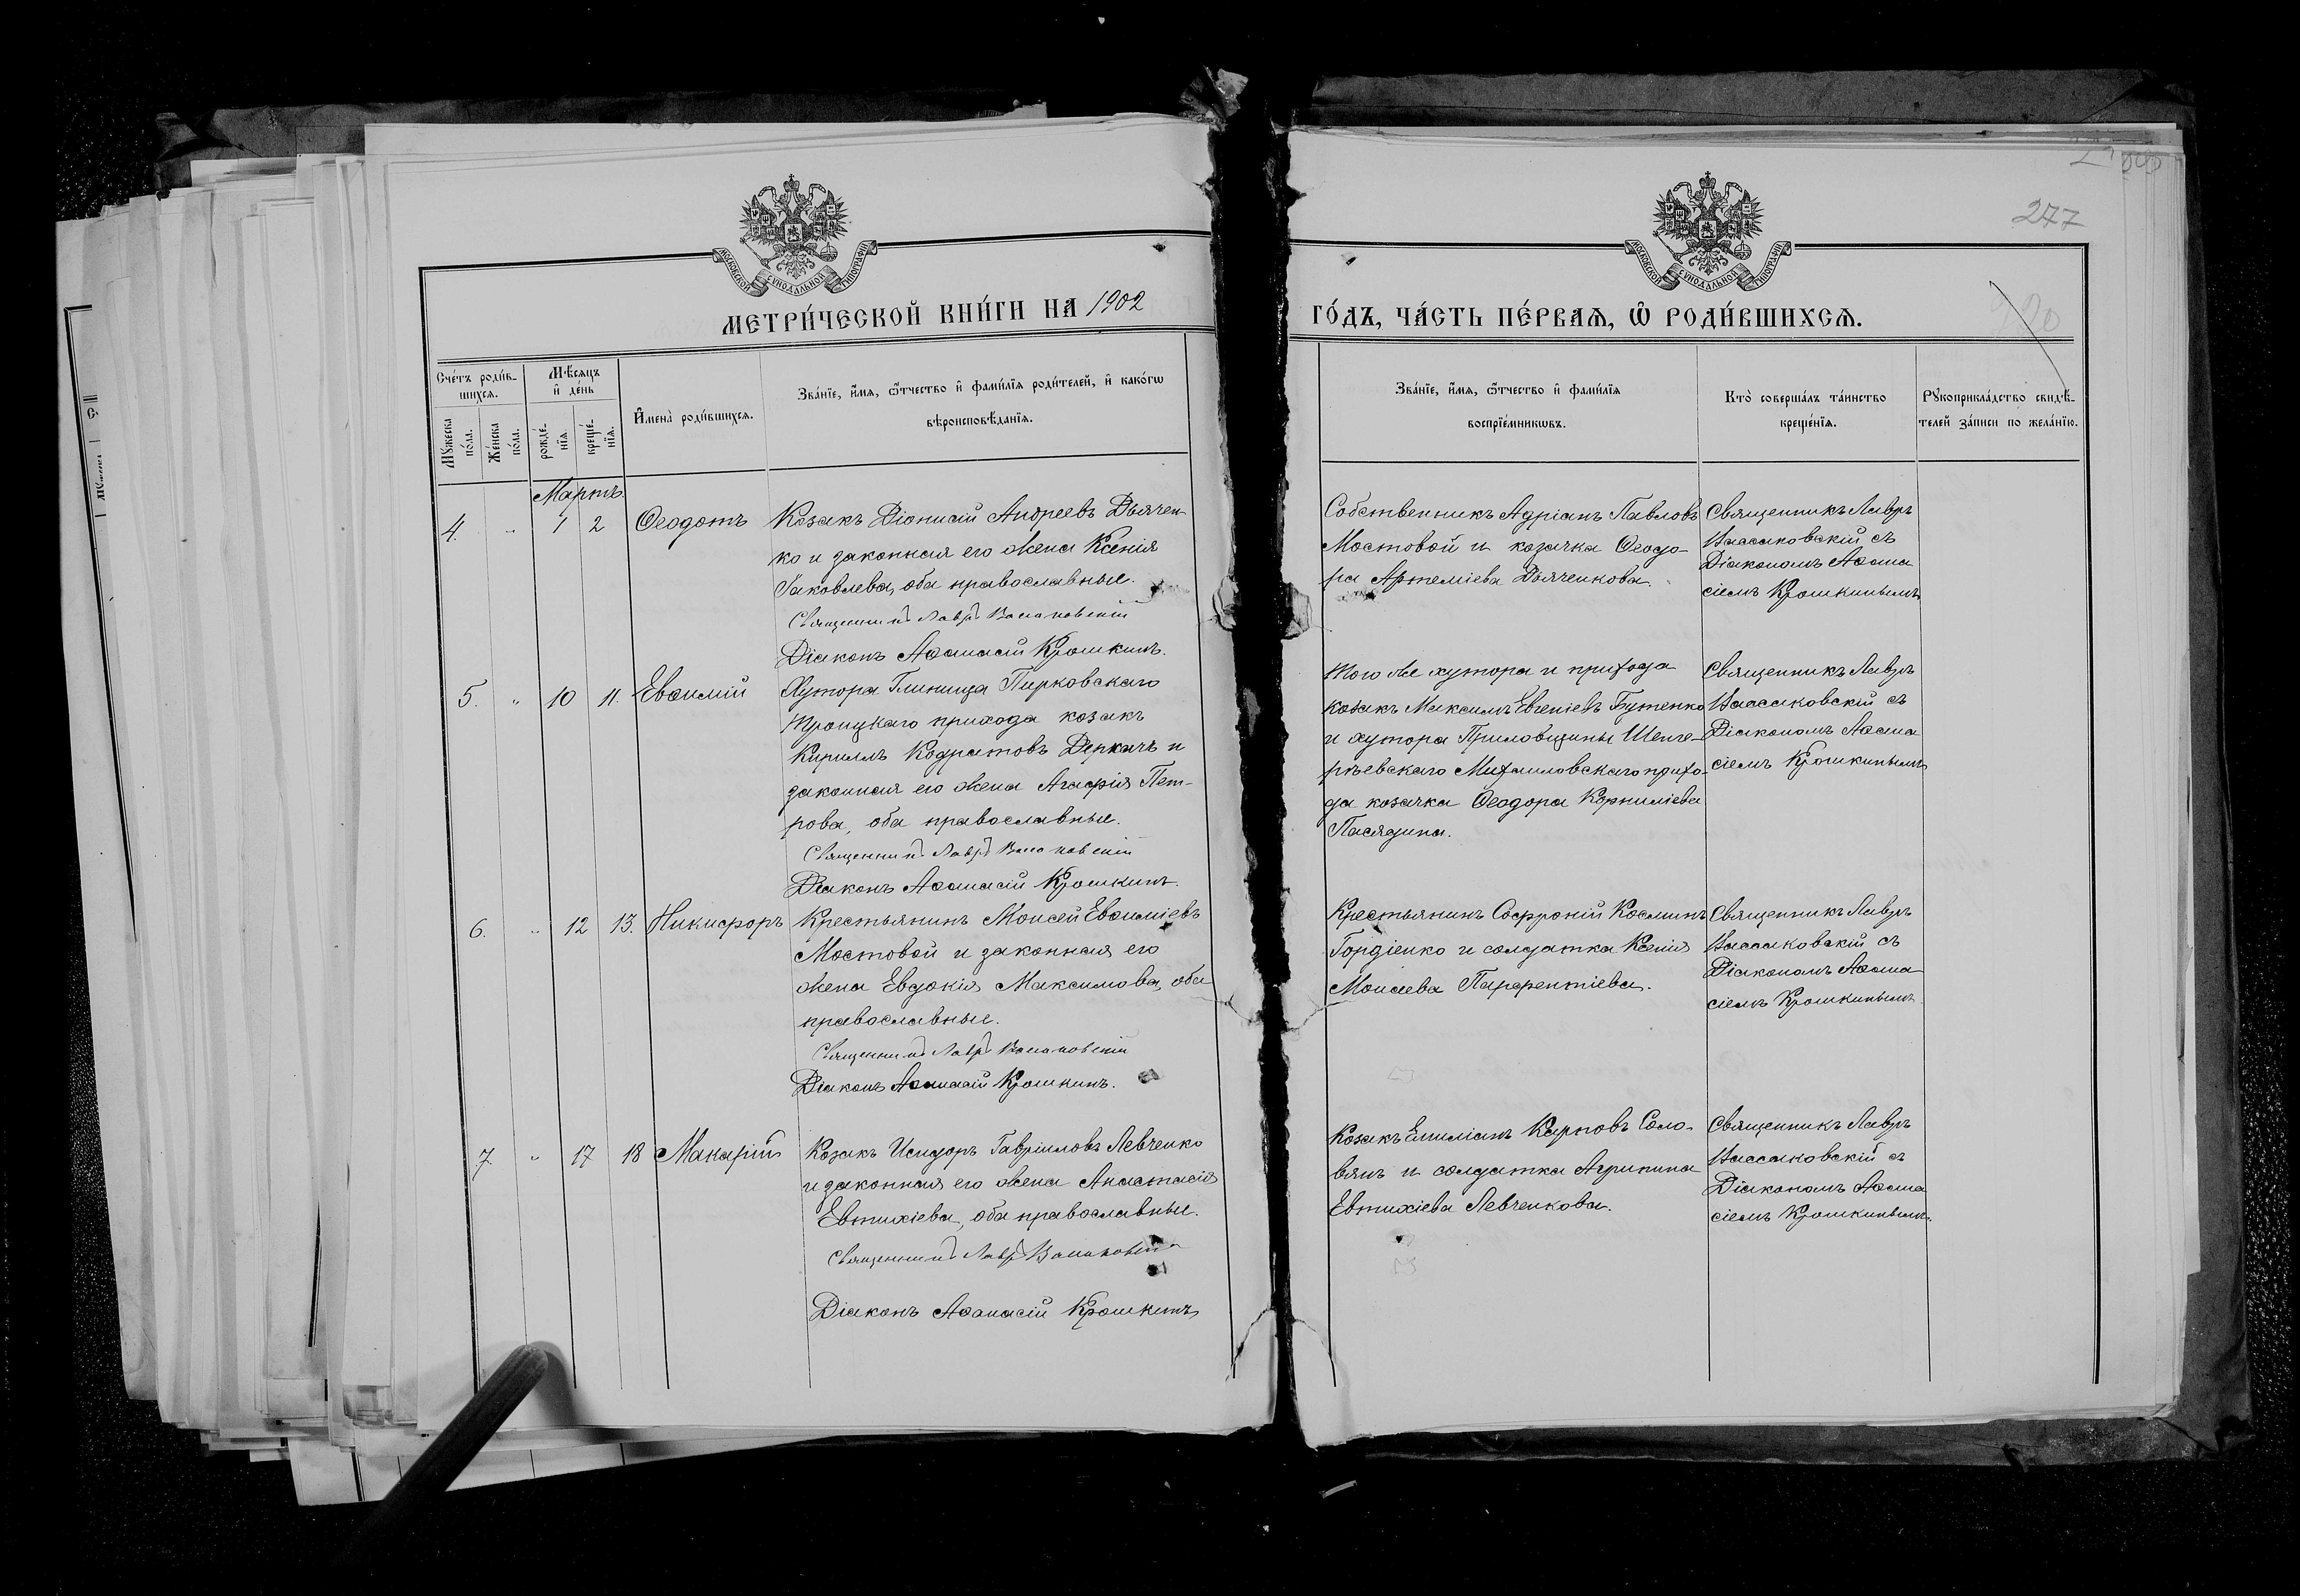 277
МОСКОВСКОЙ СУНОДАЛЬНОЙ ТИПОГРАФІИ
МОСКОВСКОЙ СУНОДАЛЬНОЙ ТИПОГРАФІИ
МЕТРИ́ЧЕСКОЙ КНИ́ГИ НА 1902
ГО́ДЪ, ЧА́СТЬ ПЕ́РВАѦ, Ѡ РОДИ́ВШИХСѦ.
Сче́тъ роди́в-
шихсѧ.
Мꙋ́жеска
по́ла.
Же́нска
по́ла.
Мѣ́сѧцъ
и҆ де́нь
рожде́-
нїѧ.
креще́-
нїѧ.
И҆мена̀ роди́вшихсѧ.
Зва́нїе, и҆́мѧ, ѻ҆́тчество и҆ фами́лїѧ роди́телей, и҆ како́гѡ
вѣроисповѣ́данїѧ.
Зва́нїе, и҆́мѧ, ѻ҆́тчество и҆ фами́лїѧ
воспрїе́мникѡвъ.
Кто̀ соверша́лъ та́инство
креще́нїѧ.
Рꙋкоприкла́дство свидѣ́-
телей за́писи по жела́нїю.
Мартъ
4. " 1 2 Ѳеодотъ
Козакъ Діонисій Андреевъ Дьячен-
ко и законная его жена Ксенія
Іаковлева, оба православные.
Священникъ Лавръ Васаковскій
Діаконъ Аѳанасій Крошкинъ.
Собственникъ Адріанъ Павловъ
Мостовой и козачка Ѳеодо-
ра Артеміева Дьяченкова.
Священникъ Лавръ
Васаковскій съ
Діакономъ Аѳана
сіемъ Крошкинымъ
5. " 10 11. Евѳимій
Хутора Глинища Пирковскаго
Троицкаго прихода козакъ
Кириллъ Кодратовъ Деркачъ и
законная его жена Агафія Пет-
рова, оба православные.
Священникъ Лавръ Васаковскій
Діаконъ Аѳанасій Крошкинъ.
Того же хутора и прихода
козакъ Максимъ Евгеніевъ Бутенко
и хутора Приловщины Шенге-
рѣевскаго Михаиловскаго прихо-
да козачка Ѳеодора Корниліева
Пасядина.
Священникъ Лавръ
Васаковскій съ
Діакономъ Аѳана
сіемъ Крошкинымъ
6. " 12 13. Никифоръ
Крестьянинъ Моисей Евѳиміевъ
Мостовой и законная его
жена Евдокія Максимова, оба
православные.
Священникъ Лавръ Васаковскій
Діаконъ Аѳанасій Крошкинъ.
Крестьянинъ Софроній Косминъ
Гордіенко и солдатка Ксенія
Моисеева Парфентіева.
Священникъ Лавръ
Васаковскій съ
Діакономъ Аѳана
сіемъ Крошкинымъ
7 " 17 18 Макарій
Козакъ Исидоръ Гавріиловъ Левченко
и законная его жена Анастасія
Евтихіева, оба православные.
Священникъ Лавръ Васаковскій
Діаконъ Аѳанасій Крошкинъ
Козакъ Емиліанъ Карповъ Соло-
вянъ и солдатка Агрипина
Евтихіева Левченкова.
Священникъ Лавръ
Васаковскій съ
Діакономъ Аѳана
сіемъ Крошкинымъ.